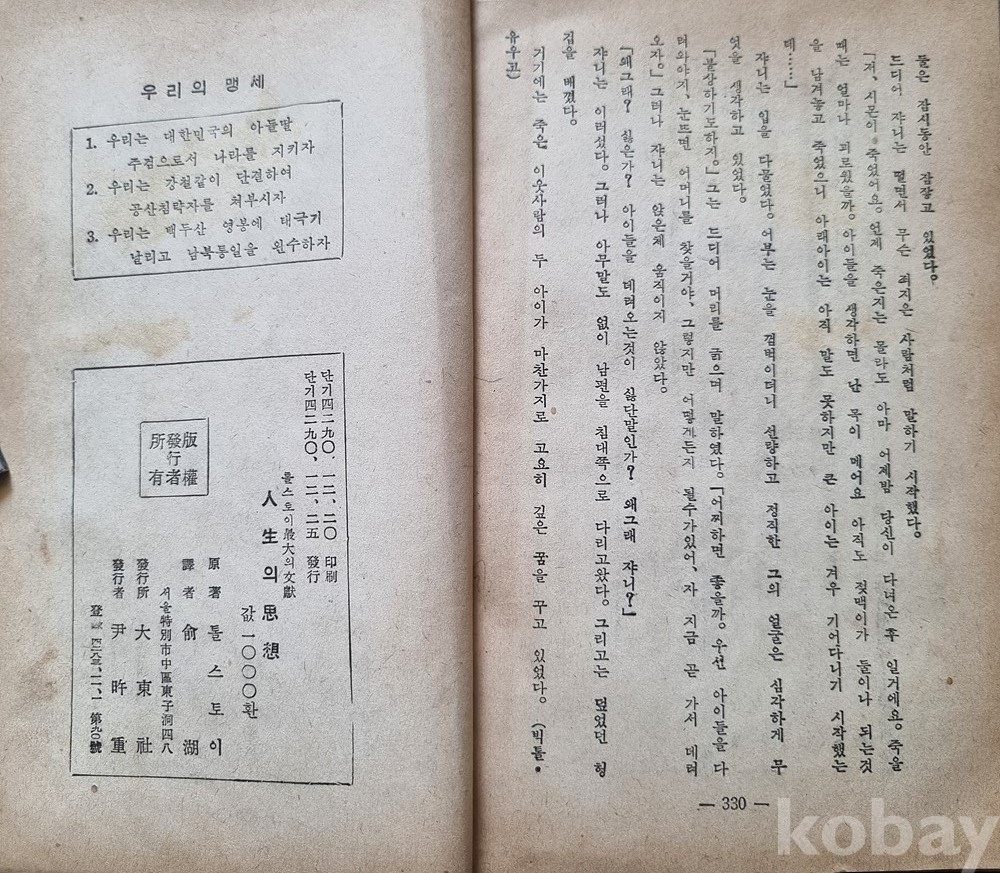 들은 잠시동안 잠잫고 있었다.
드디어 쟈니는 떨면서 무슨 죄지은 사람처럼 말하기 시작했다.
「저, 시몬이 죽었어요. 언제 죽은지는 몰라도 아마 어제밤 당신이 다녀온후 일거에요. 죽을
때는 얼마나 괴로웠을까. 아이들을 생각하면 난 목이 메어요 아직도 젖맥이가 둘이나 되는것
을 남겨놓고 죽었으니 아래아이는 아직 말도 못하지만 큰 아이는 겨우 기어다니기 시작했는
데……」
쟈니는 입을 다물었다. 어부는 눈을 껌벅이더니 선량하고 정직한 그의 얼굴은 심각하게 무
엇을 생각하고 있었다.
「불상하기도하지.」 그는 드디어 머리를 긁으며 말하였다. 「어찌하면 좋을까. 우선 아이들을 다
려와야지, 눈뜨면 어머니를 찾을거야, 그렇지만 어떻게든지 될수가있어, 자 지금 곧 가서 데려
오자.」 그러나 쟈니는 앉은체 움직이지 않았다.
「왜그래? 싫은가? 아이들을 데려오는것이 싫단말인가? 왜그래 쟈니?」
쟈니는 이러섰다. 그러나 아무말도 없이 남편을 침대쪽으로 다리고왔다. 그리고는 덮었던 헝
겊을 베꼈다.
거기에는 죽은 이웃사람의 두 아이가 마찬가지로 고요히 깊은 꿈을 꾸고 있었다. (빅톨•
유우고)
— 330 —
우리의 맹세
1. 우리는 대한민국의 아들딸
주검으로서 나라를 지키자
2. 우리는 강철같이 단결하여
공산침략자를 처부시자
3. 우리는 백두산 영봉에 태극기
날리고 남북통일을 완수하자
단기四二九〇. 一二、二〇 印刷
단기四二九〇、一二、二五 發行
톨스토이最大의文獻
人生의思想
값 一〇〇〇환
版權
發行者
所有
原著 톨스토이
譯者 兪湖
서울特別市中區東子洞四八
發行所 大東社
發行者 尹昨重
登錄 四二八三、一一、一 第九〇號
kobay